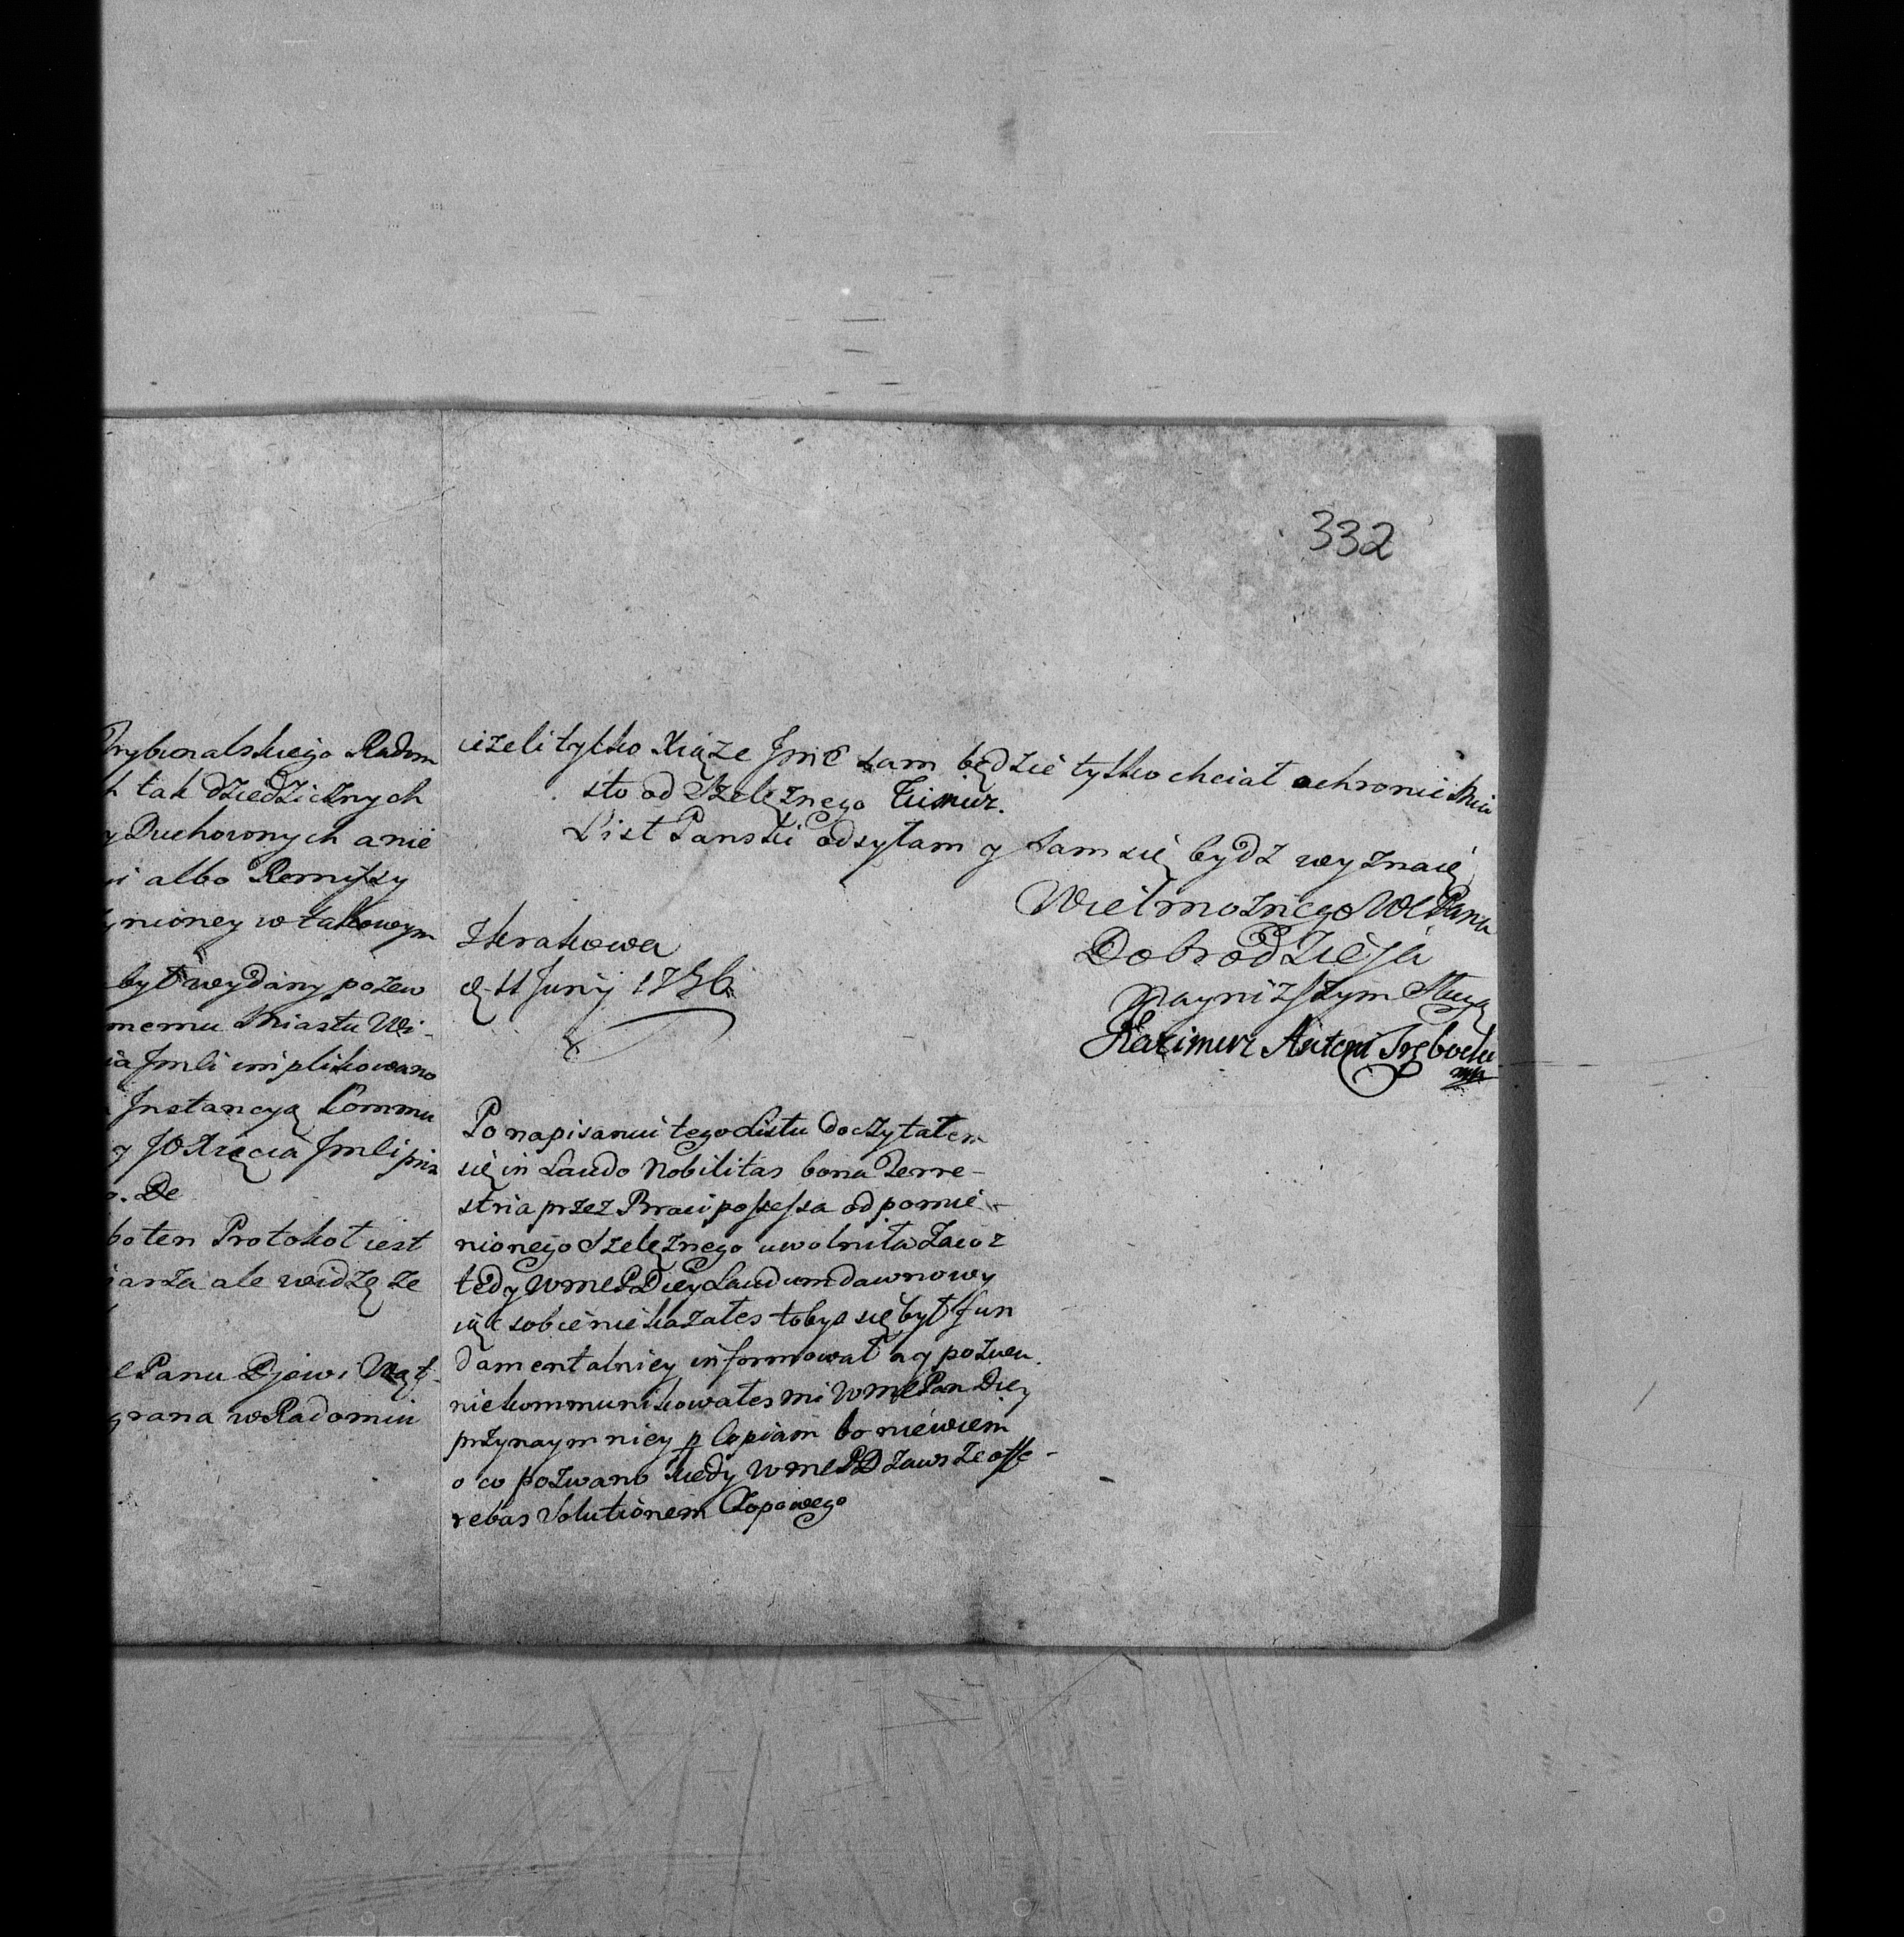 332
Trybunalskiego Radom
k tak dziedzicznych
y Duchownych a nie
albo Remissy
ynioney w takowym
był wydany pozew
nemu Miastu Wi-
ia Jmsci implikowano
Instancyą Commu
y JO Xięcia Jmsci
o. De
bo ten Protokoł iest
iarza ale widzę ze
e Panu Djewi
grana w Radomiu
ieżeli tylko Xiąze Jmć sam będzie tylko chciał ochronić Mia
sto od Szelęznego
List Panski odsyłam y sam się bydz wyznaię
Wielmoznego WMPana
Dobrodzieja
Nayniższym Sługą
Kazimierz Antoni Trębecki
mp
z Krakowa
d. 11 Junij 1756
Po napisaniu tego Listu doczytałem
się in Laudo Nobilitas bona Terre-
stria przez Braci possessa od pomie-
nionego Szelęznego uwolniła zacoz
tedy WMPDiey Laudum dawnowy
iąć sobie nie kazałes tobys się był fun
damentalniey informował a y pozwu
niekommunikowałes mi WMPan Diey
przynaymniey p Copiam bo niewiem
o co pozwano kiedy WMPD zawsze offe-
rebas Solutionem Czopowego